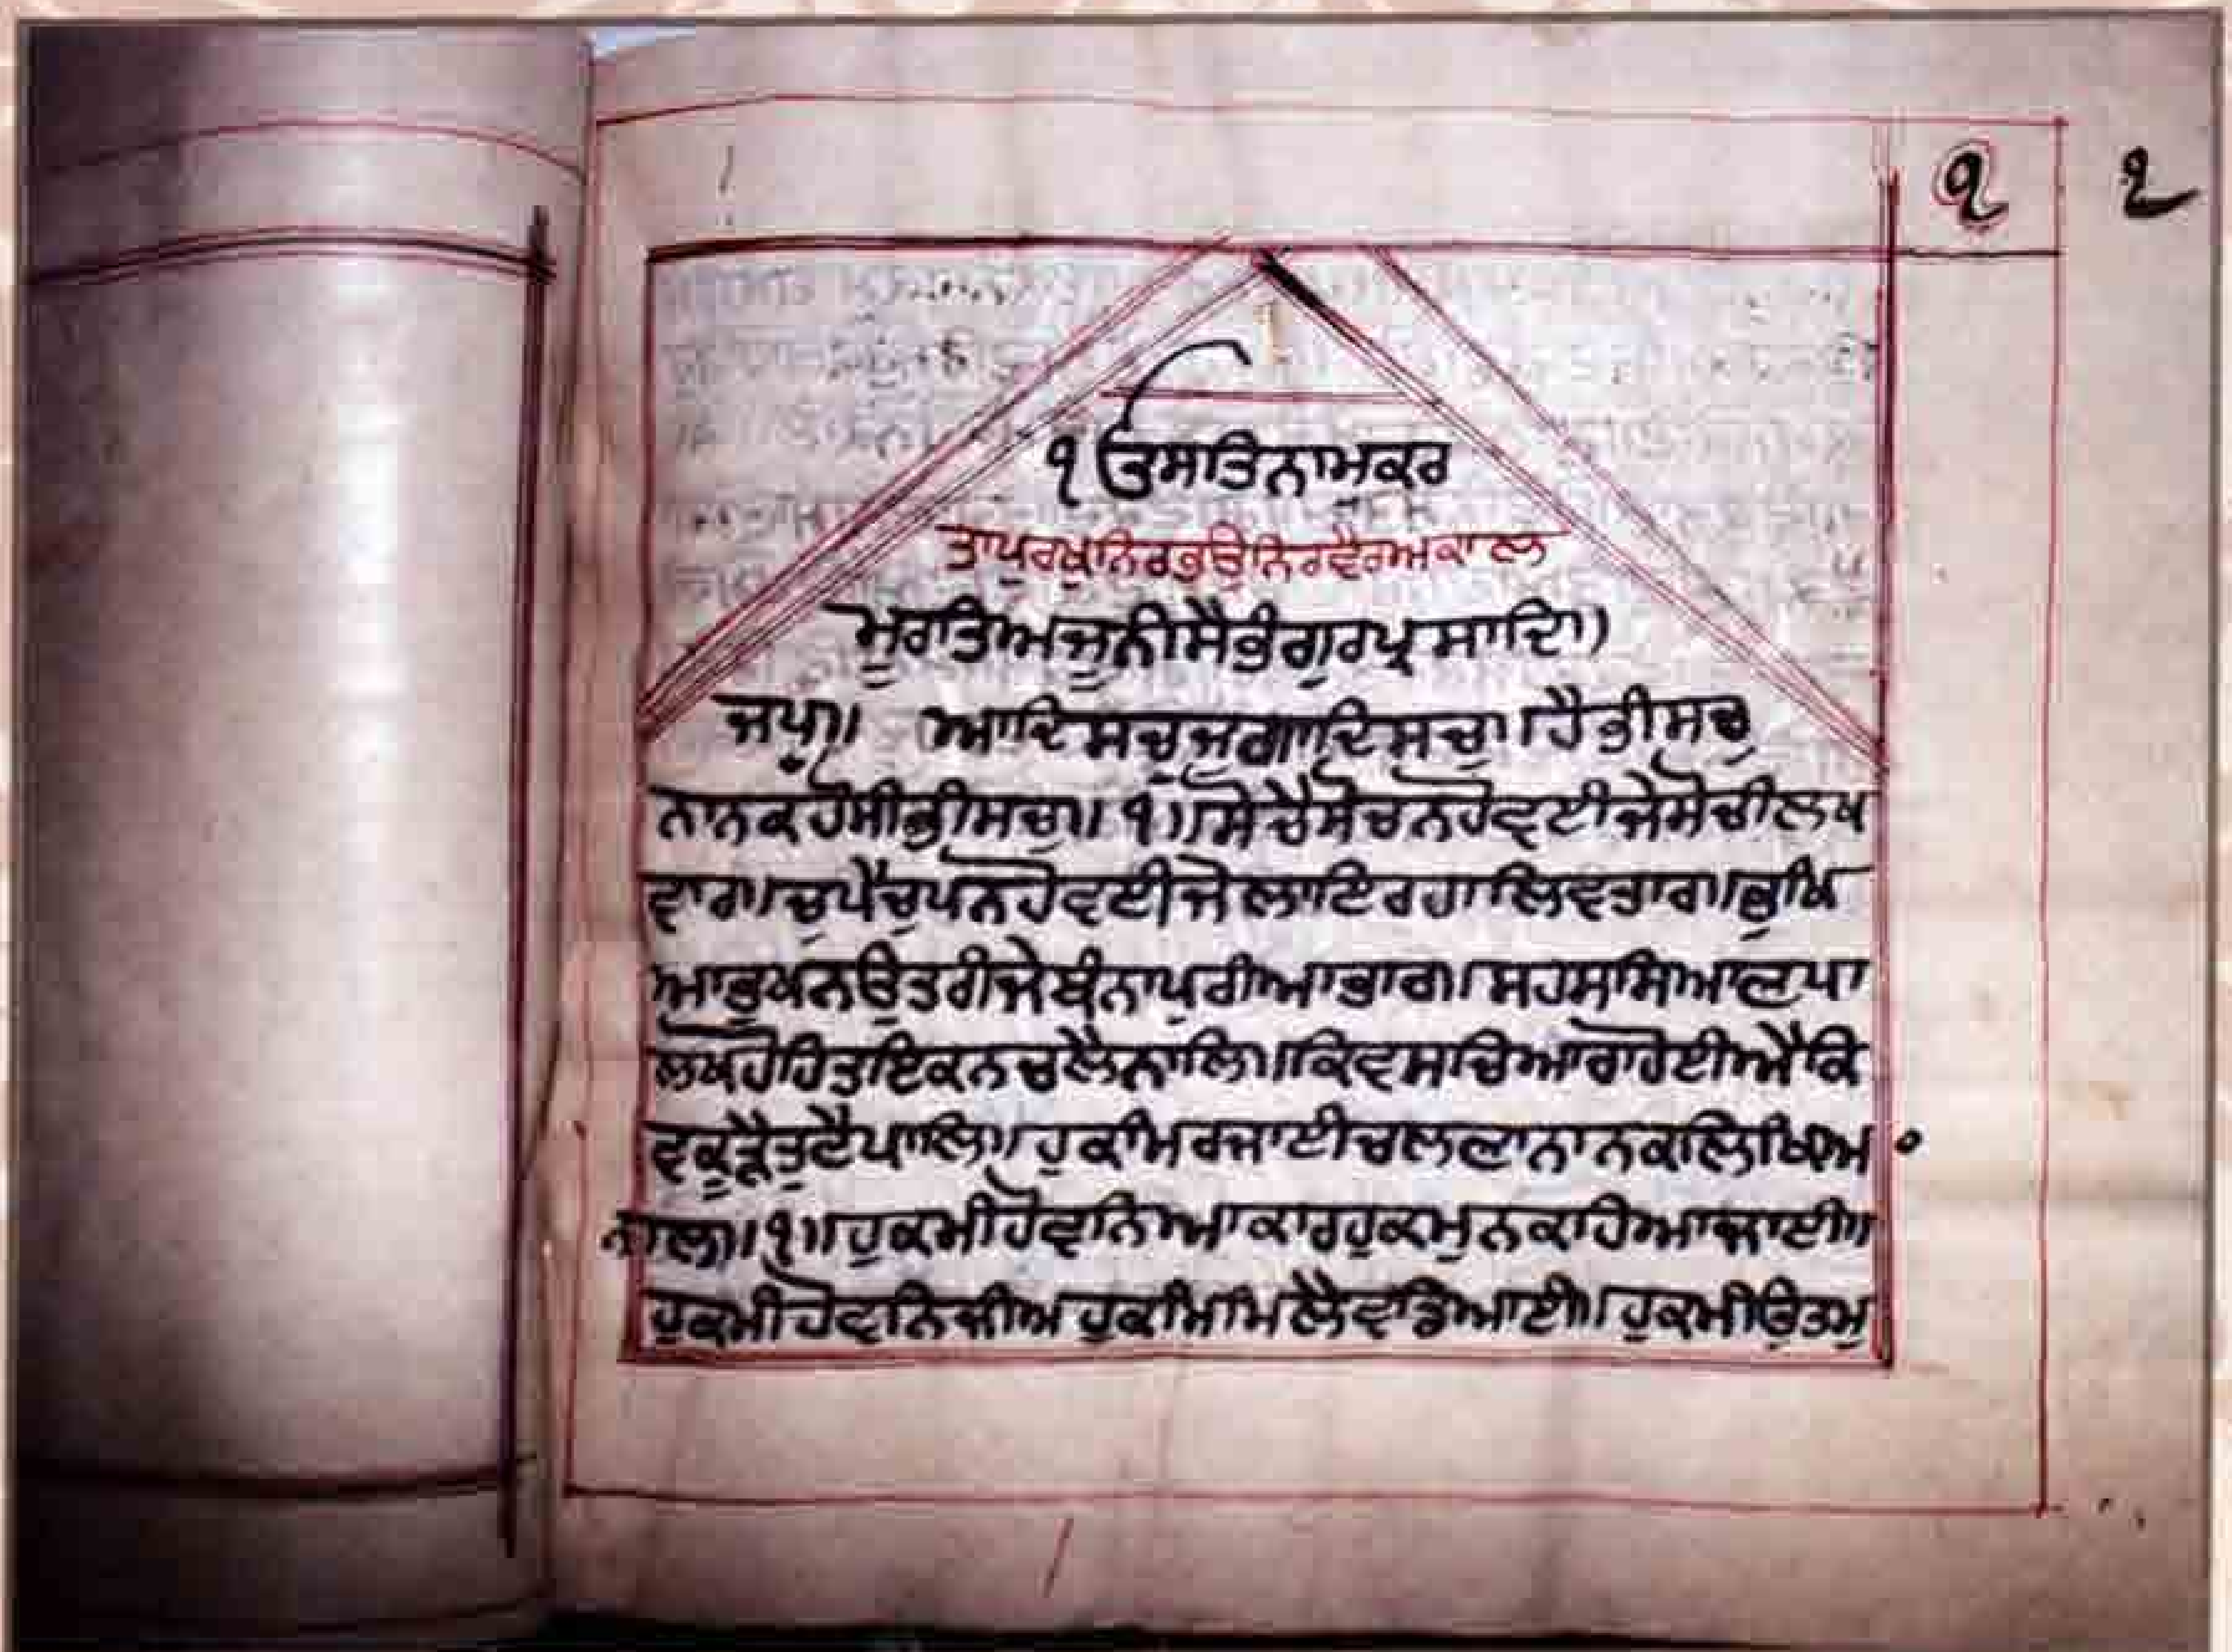 ੧ ੧
ੴਸਤਿਨਾਮੁਕਰ
ਤਾਪੁਰਖੁਨਿਰਭਉਨਿਰਵੈਰਅਕਾਲ
ਮੁਰਤਿਅਜੁਨੀਸੈਭੰਗੁਰਪ੍ਰਸਾਦਿ॥
ਜਪੁ॥ ਆਦਿਸਚੁਜੁਗਾਦਿਸਚੁ॥ਹੈਭੀਸਚੁ
ਨਾਨਕਹੋਸੀਭੀਸਚੁ॥੧॥ਸੋਚੈਸੋਚਨਹੋਵਈਜੇਸੋਚੀਲਖ
ਵਾਰ॥ਚੁਪੈਚੁਪਨਹੋਵਈਜੇਲਾਇਰਹਾਲਿਵਤਾਰ॥ਭੁਖਿ
ਆਭੁਖਨਉਤਰੀਜੇਬੰਨਾਪੁਰੀਆਭਾਰ॥ਸਹਸਸਿਆਣਪਾ
ਲਖਹੋਹਿਤਇਕਨਚਲੈਨਾਲਿ॥ਕਿਵਸਚਿਆਰਾਹੋਈਐਕਿ
ਵਕੂੜੈਤੁਟੈਪਾਲਿ॥ਹੁਕਮਿਰਜਾਈਚਲਣਾਨਾਨਕਲਿਖਿਆ
ਨਾਲ॥੧॥ਹੁਕਮੀਹੋਵਨਿਆਕਾਰਹੁਕਮੁਨਕਹਿਆਜਾਈ॥
ਹੁਕਮੀਹੋਵਨਿਜੀਅਹੁਕਮਿਮਿਲੈਵਡਿਆਈ॥ਹੁਕਮੀਉਤਮੁ